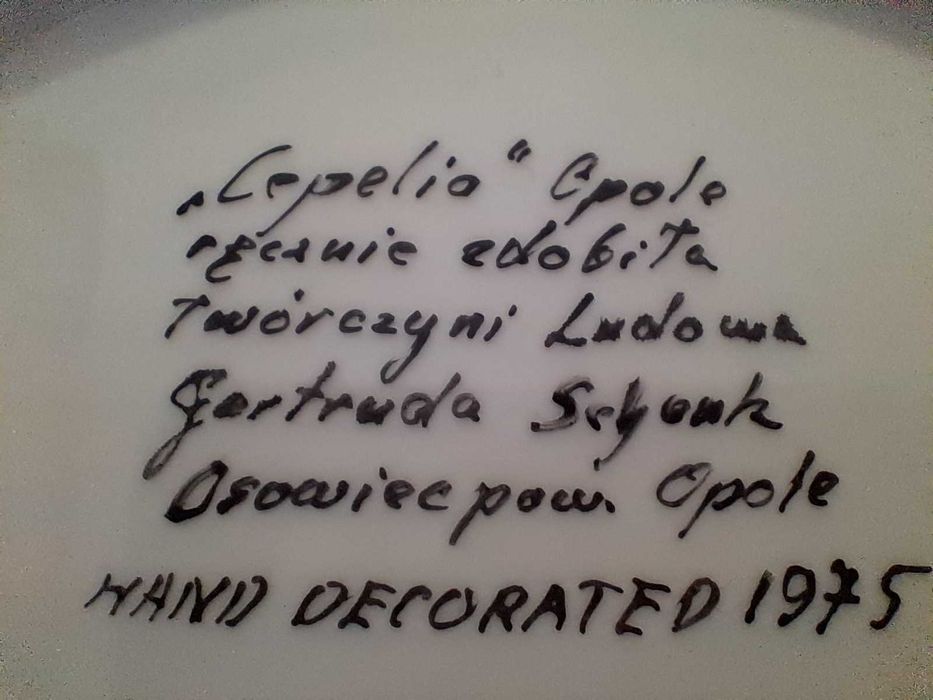 „Cepelia" Opole
ręcznie zdobiła
Twórczyni Ludowa
Gertruda
Osowiec pow. Opole
HAND DECORATED 1975